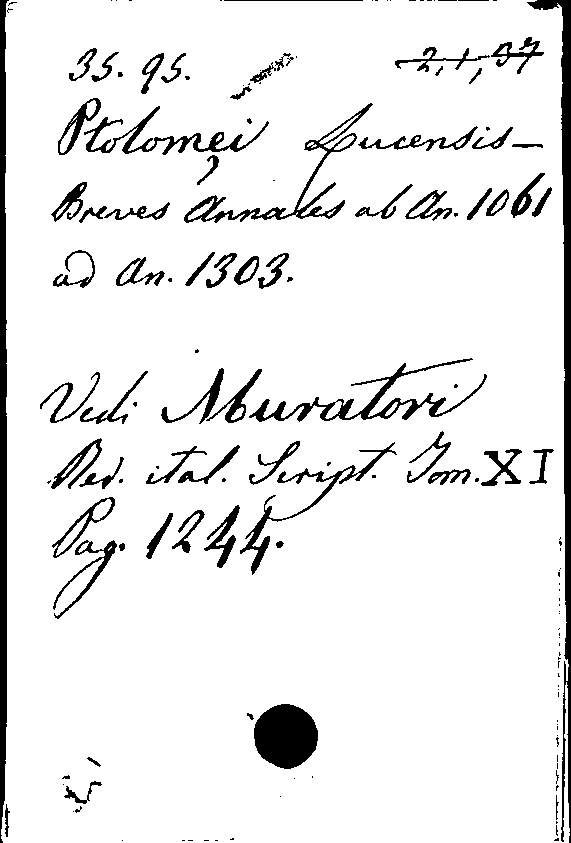 35. 95. 2,1,37
Ptolomei Lucensis—
Breves Annales ab An. 1061
ad An. 1303.
Vedi Muratori
Rer. ital. Script. Tom. XI
Pag. 1244.